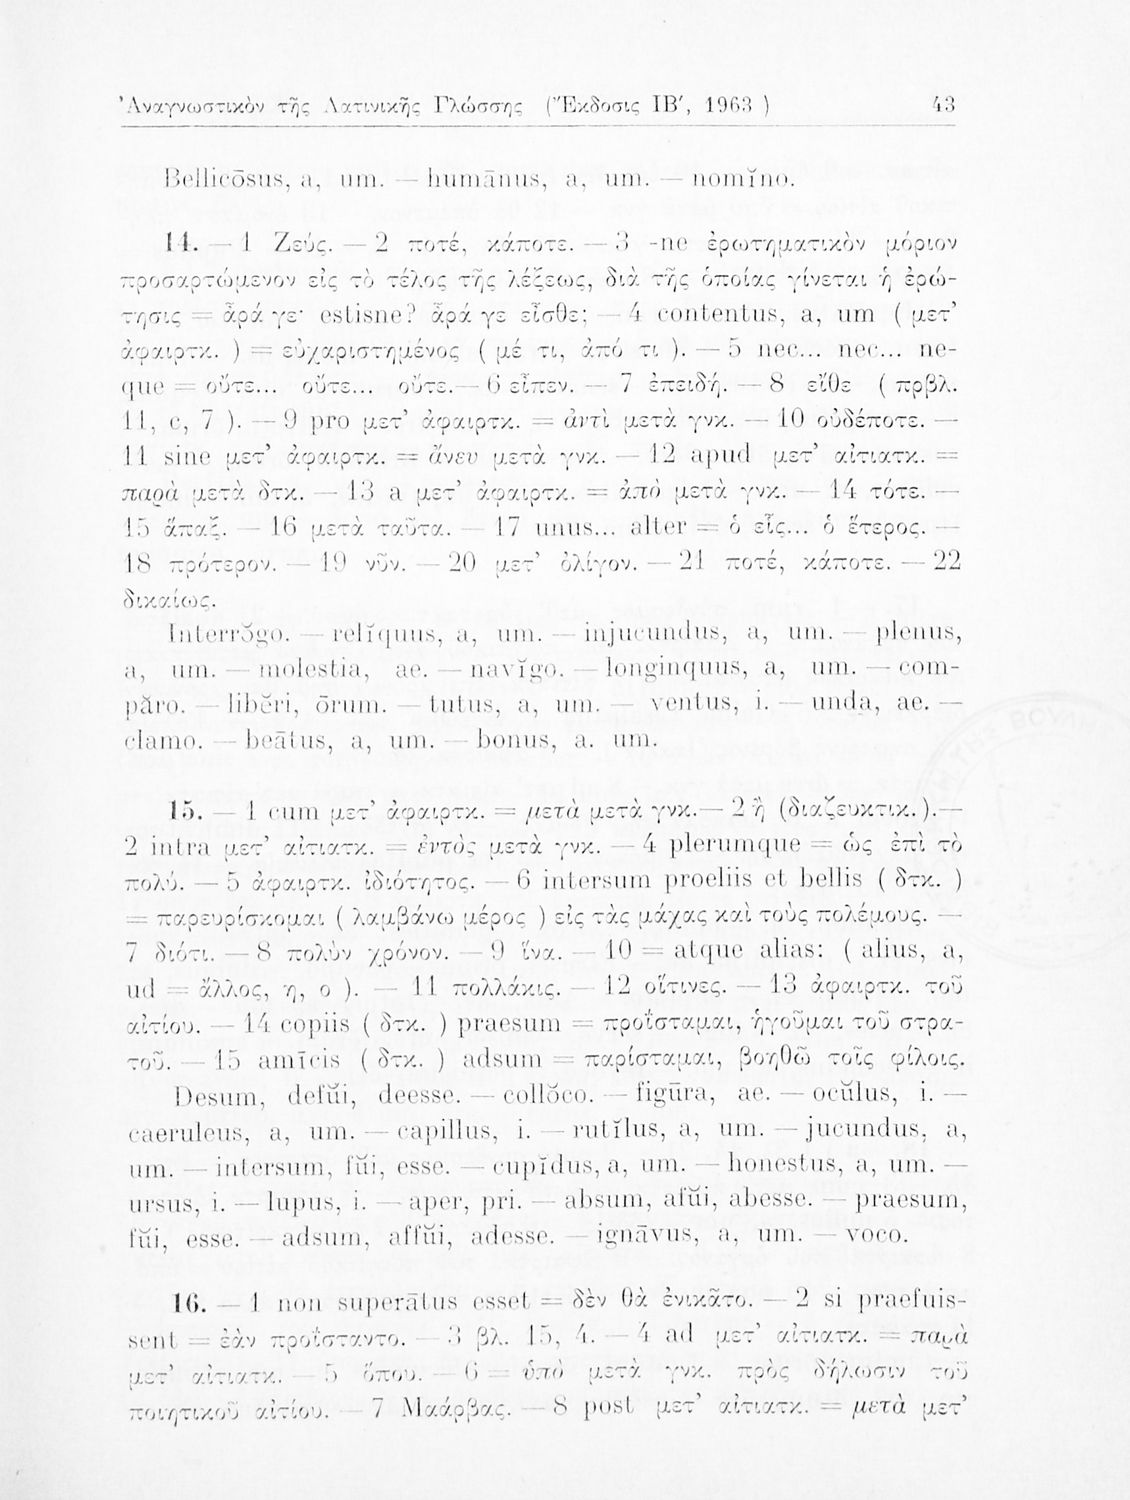 Ἀναγνωστικὸν τῆς Λατινικῆς Γλώσσης (Ἔκδοσις ΙΒ′, 1963 ) 43
Bellicōsus, a, um. — humānus, a, um. — nomĭno.
14. — 1 Ζεύς. — 2 ποτέ, κάποτε. — 3 -ne ἐρωτηματικὸν μόριον
προσαρτώμενον εἰς τὸ τέλος τῆς λέξεως, διὰ τῆς ὁποίας γίνεται ἡ ἐρώ-
τησις = ἆρά γε· estisne? ἆρά γε εἶσθε; — 4 contentus, a, um ( μετ’
ἀφαιρτκ. ) = εὐχαριστημένος ( μέ τι, ἀπό τι ). — 5 nec... nec... ne-
que = οὔτε... οὔτε... οὔτε.— 6 εἶπεν. — 7 ἐπειδή. — 8 εἴθε ( πρβλ.
11, c, 7 ). — 9 pro μετ’ ἀφαιρτκ. = ἀντὶ μετὰ γνκ. — 10 οὐδέποτε. —
11 sine μετ’ ἀφαιρτκ. = ἄνευ μετὰ γνκ. — 12 apud μετ’ αἰτιατκ. =
παρὰ μετὰ δτκ. — 13 a μετ’ ἀφαιρτκ. = ἀπὸ μετὰ γνκ. — 14 τότε. —
15 ἅπαξ. — 16 μετὰ ταῦτα. — 17 unus... alter = ὁ εἷς... ὁ ἕτερος. —
18 πρότερον. — 19 νῦν. — 20 μετ’ ὀλίγον. — 21 ποτέ, κάποτε. — 22
δικαίως.
Interrŏgo. — relĭquus, a, um. — injucundus, a, um. — plenus,
a, um. — molestia, ae. — navĭgo. — longinquus, a, um. — com-
păro. — libĕri, ōrum. — tutus, a, um. — ventus, i. — unda, ae. —
clamo. — beātus, a, um. — bonus, a. um.
15. — 1 cum μετ’ ἀφαιρτκ. = μετὰ μετὰ γνκ.— 2 ἢ (διαζευκτικ.).—
2 intra μετ’ αἰτιατκ. = ἐντὸς μετὰ γνκ. — 4 plerumque = ὡς ἐπὶ τὸ
πολύ. — 5 ἀφαιρτκ. ἰδιότητος. — 6 intersum proeliis et bellis ( δτκ. )
= παρευρίσκομαι ( λαμβάνω μέρος ) εἰς τὰς μάχας καὶ τοὺς πολέμους. —
7 διότι. — 8 πολὺν χρόνον. — 9 ἵνα. — 10 = atque alias: ( alius, a,
ud = ἄλλος, η, ο ). — 11 πολλάκις. — 12 οἵτινες. — 13 ἀφαιρτκ. τοῦ
αἰτίου. — 14 copiis ( δτκ. ) praesum = προΐσταμαι, ἡγοῦμαι τοῦ στρα-
τοῦ. — 15 amīcis ( δτκ. ) adsum = παρίσταμαι, βοηθῶ τοῖς φίλοις.
Desum, defŭi, deesse. — collŏco. — figūra, ae. — ocŭlus, i. —
caeruleus, a, um. — capillus, i. — rutĭlus, a, um. — jucundus, a,
um. — intersum, fŭi, esse. — cupĭdus, a, um. — honestus, a, um. —
ursus, i. — lupus, i. — aper, pri. — absum, afŭi, abesse. — praesum,
fŭi, esse. — adsum, affŭi, adesse. — ignāvus, a, um. — voco.
16. — 1 non superātus esset = δὲν θὰ ἐνικᾶτο. — 2 si praefuis-
sent = ἐὰν προΐσταντο. — 3 βλ. 15, 4. — 4 ad μετ’ αἰτιατκ. = παρὰ
μετ’ αἰτιατκ. — 5 ὅπου. — 6 = ὑπὸ μετὰ γνκ. πρὸς δήλωσιν τοῦ
ποιητικοῦ αἰτίου. — 7 Μαάρβας. — 8 post μετ’ αἰτιατκ. = μετὰ μετ’